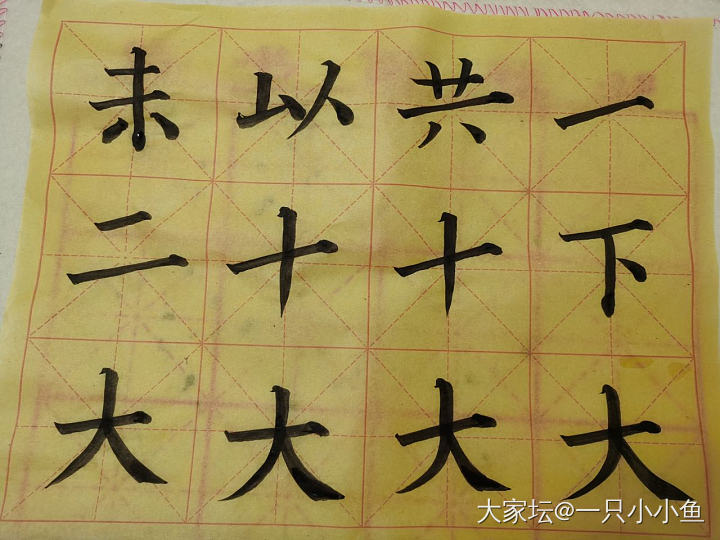 未以共一
二十十下
大大大大
大家坛@一只小小鱼